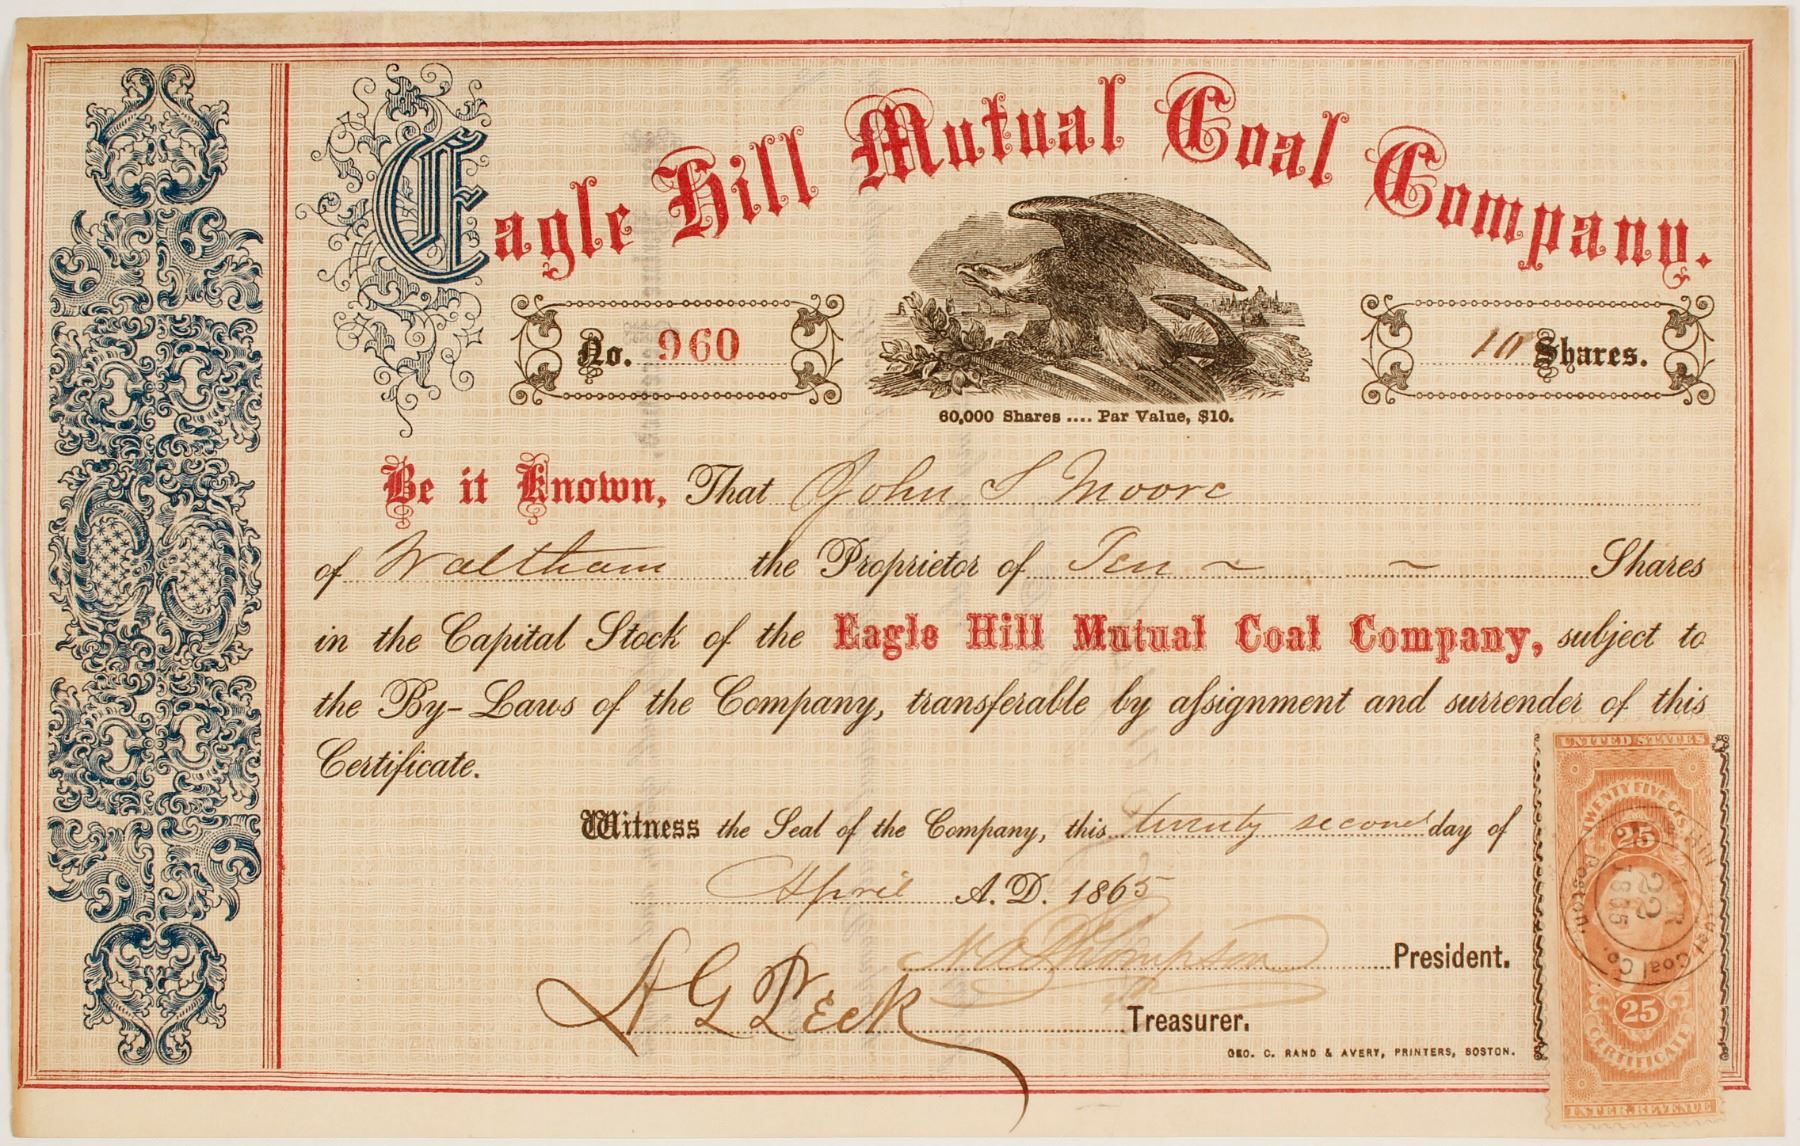 Eagle Hill Mutual Coal Company.
No. 960
10 Shares.
60,000 Shares .... Par Value, $10.
Be it Known, That John S Moore
of Waltham the Proprietor of Ten ~ ~ Shares
in the Capital Stock of the Eagle Hill Mutual Coal Company, subject to
the By-Laws of the Company, transferable by aſsignment and surrender of this
Certificate.
Witness the Seal of the Company, this twenty second day of
April A.D. 1865
N A Thompson President.
A G Peck Treasurer.
GEO. C. RAND & AVERY, PRINTERS, BOSTON.
UNITED STATES
TWENTY FIVE CTS
25
22
1865
Coal Co.
Boston.
25
CERTIFICATE
INTER. REVENUE